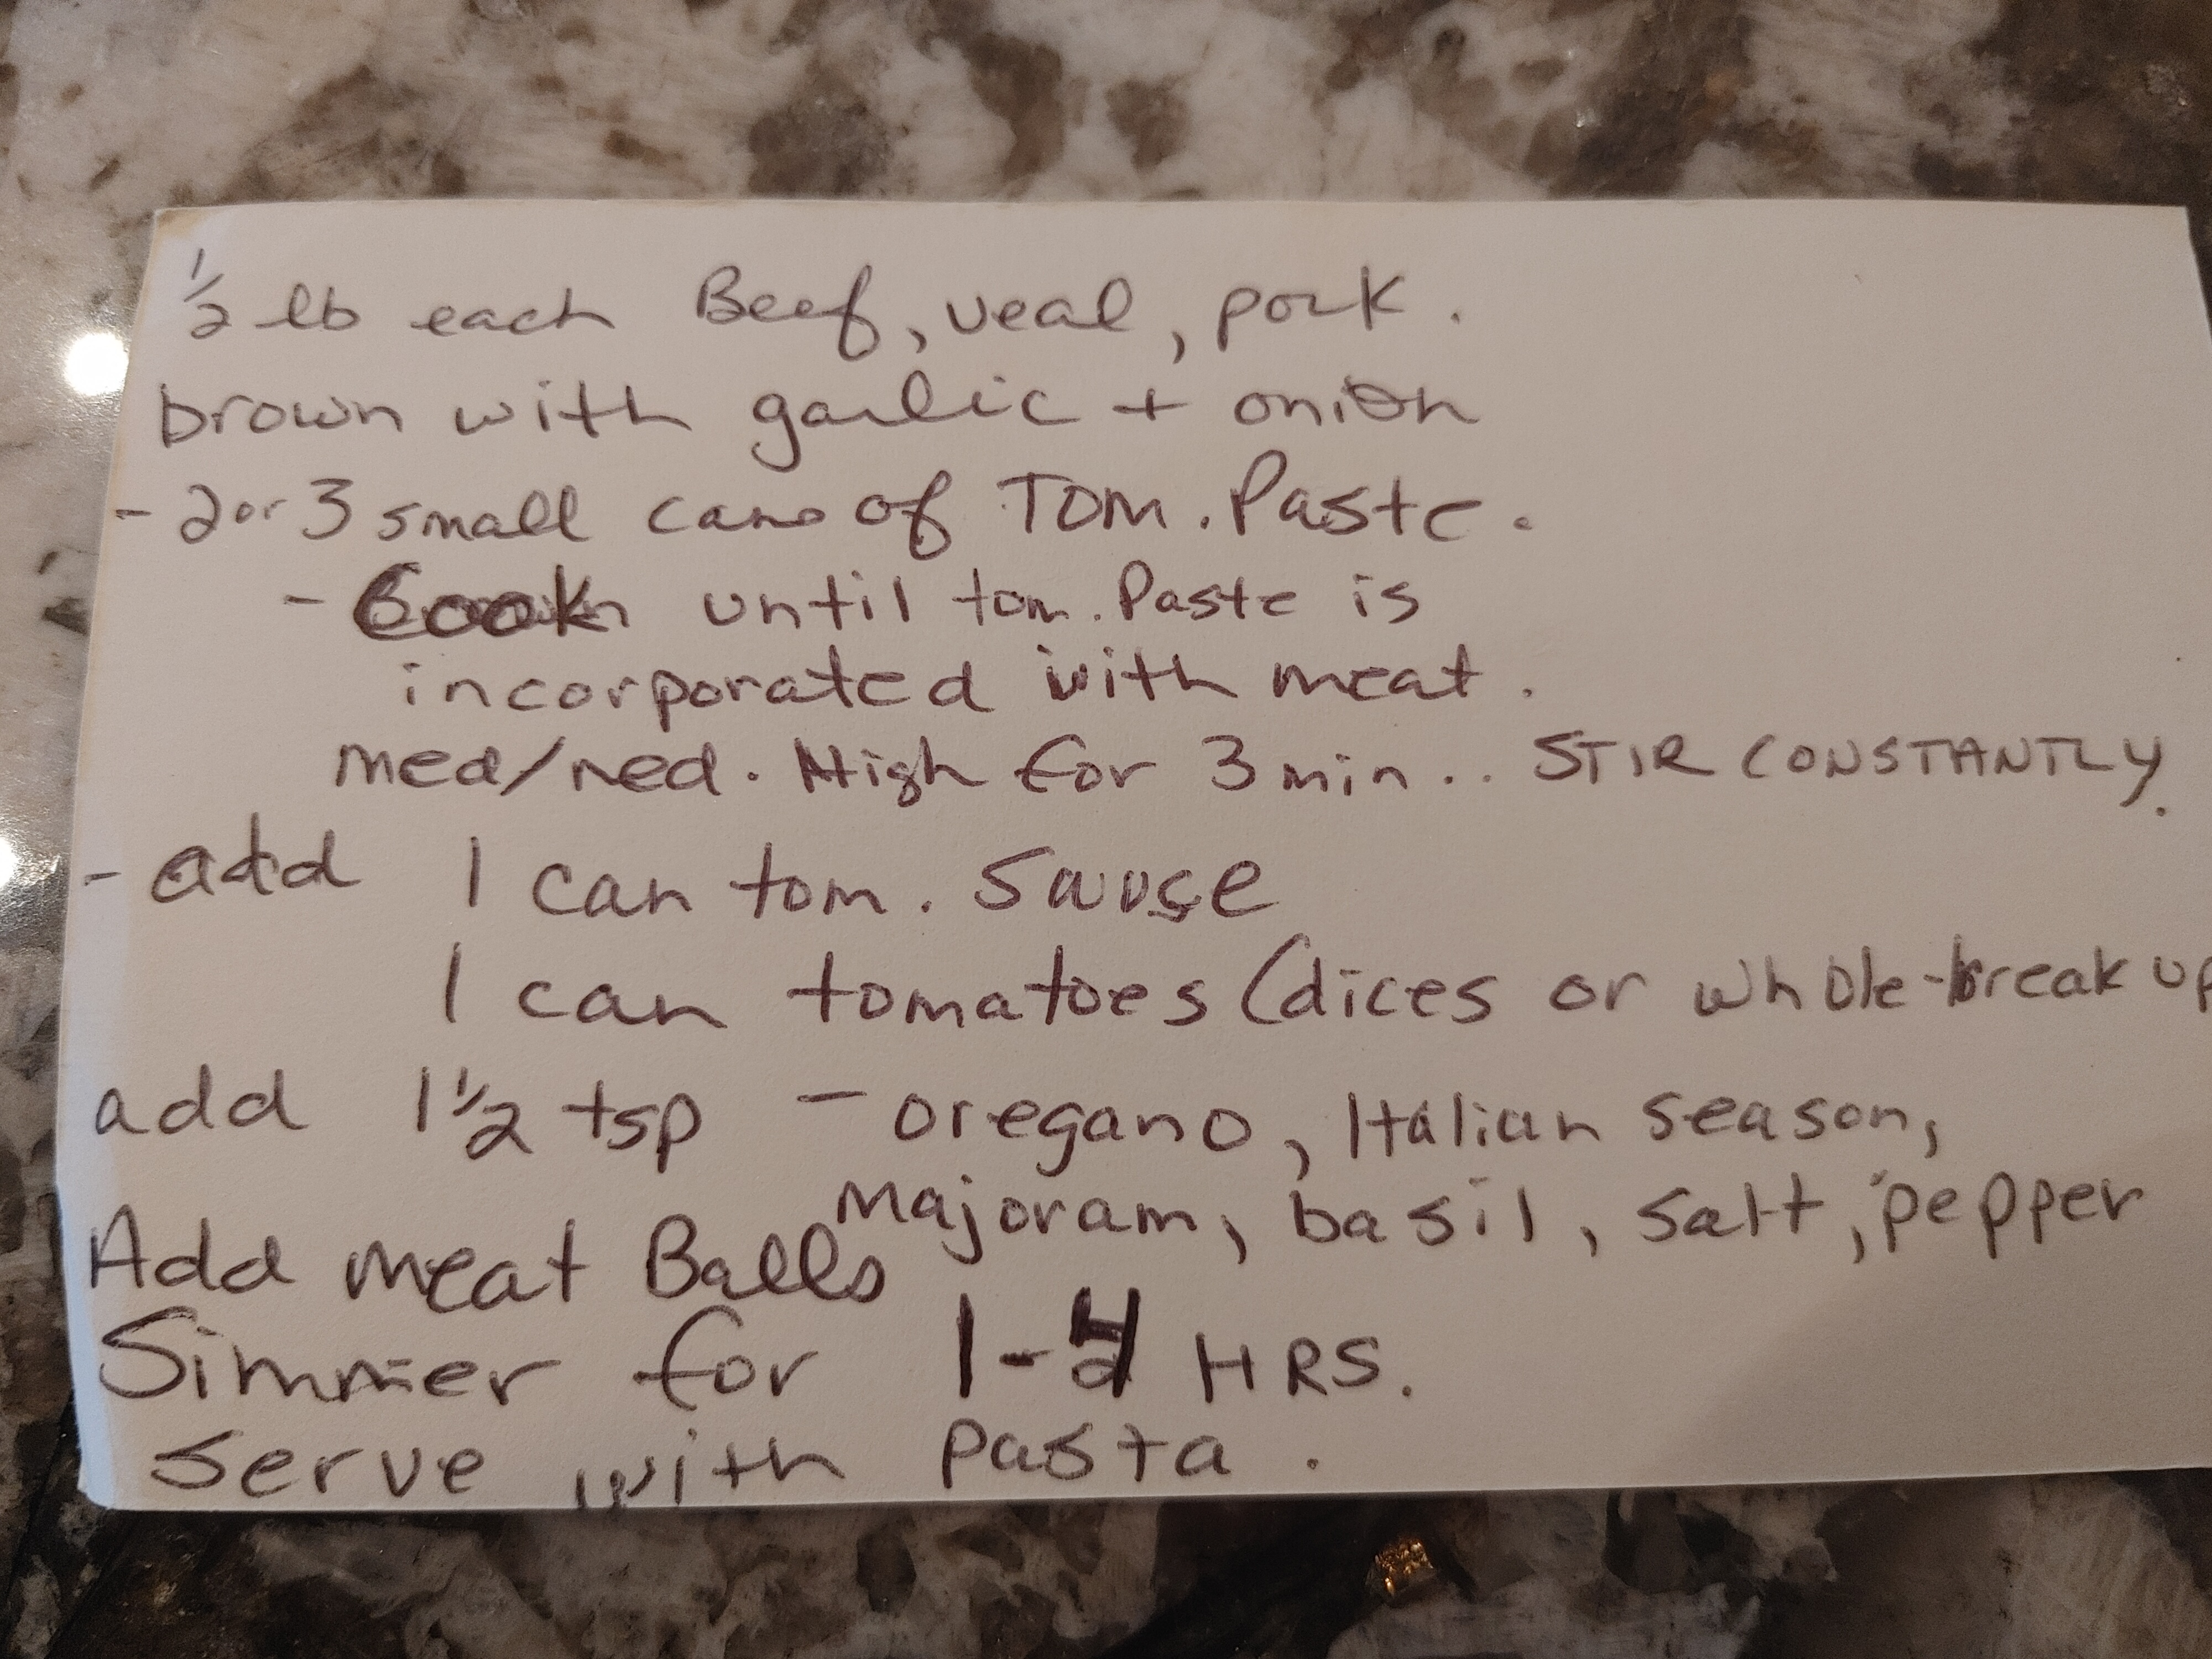 1/2 lb each Beef, veal, pork.
brown with garlic + onion
- 2 or 3 small cans of Tom. Paste.
- Cook until tom. Paste is
incorporated with meat.
med/med. High for 3 min.. STIR CONSTANTLY.
- add 1 can tom. Sauce
1 can tomatoes (dices or whole-break up
add 1 1/2 tsp - oregano, Italian season,
Majoram, basil, salt, pepper
Add meat Balls
Simmer for 1-4 HRS.
Serve with pasta.